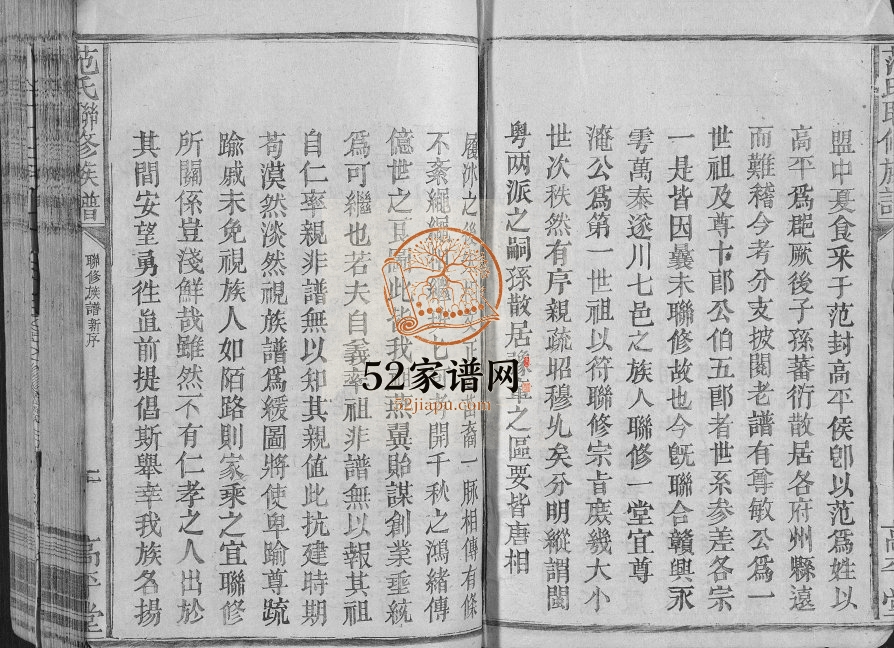 盟中夏食采于范封高平侯卽以范爲姓以
高平爲郡厥後子孫蕃衍散居各府州縣遠
而難稽今考分支披閱老譜有尊敏公爲一
世祖及尊十郎公伯五郎者世系參差各宗
一是皆因曩未聯修故也今旣聯合贛興永
雩萬泰遂川七邑之族人聯修一堂宜尊
淹公爲第一世祖以符聯修宗旨庶幾大小
世次秩然有序親疏昭穆允矣分明縱謂閩
粤兩派之嗣孫散居之區要皆唐相
履冰之後裔一脈相傳有條
不紊繩繩繼開千秋之鴻緖傳
億世之其此我翼貽謀創業垂統
爲可繼也若夫自義率祖非譜無以報其祖
自仁率親非譜無以知其親値此抗建時期
苟漠然淡然視族譜爲緩圖將使卑踰尊疏
踰戚未免視族人如陌路則家乘之宜聯修
所關係豈淺鮮哉雖然不有仁孝之人出於
其間安望勇徃直前提倡斯舉幸我族各揚
范氏聯修族譜
聯修族譜新序
高平堂
52家谱网
52jiapu.com